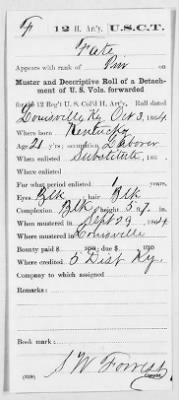 F 12 H. Art'y. U.S.C.T.
Fate
Appears with rank of Priv on
Muster and Descriptive Roll of a Detach-
ment of U. S. Vols. forwarded
for the 12 Reg't U. S. Col'd H. Art'y. Roll dated
Louisville Ky Oct 3, 1864
Where born Kentucky
Age 21 y'rs; occupation Laborer
When enlisted Substitute, 186 .
Where enlisted
For what period enlisted 1 years.
Eyes Blk; hair Blk
Complexion Blk; height 5 ft. 7 in.
When mustered in Sept 29, 1864
Where mustered in Louisville
Bounty paid $ 100; due $ 100
Where credited 5 Dist Ky.
Company to which assigned
Remarks:
Book mark:
S W Forrest
Copyist.